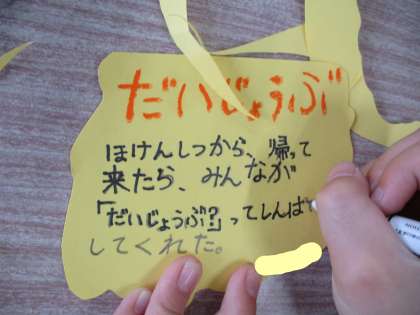 だいじょうぶ
ほけんしつから、帰って
来たら、みんなが
「だいじょうぶ?」ってしんぱい
してくれた。